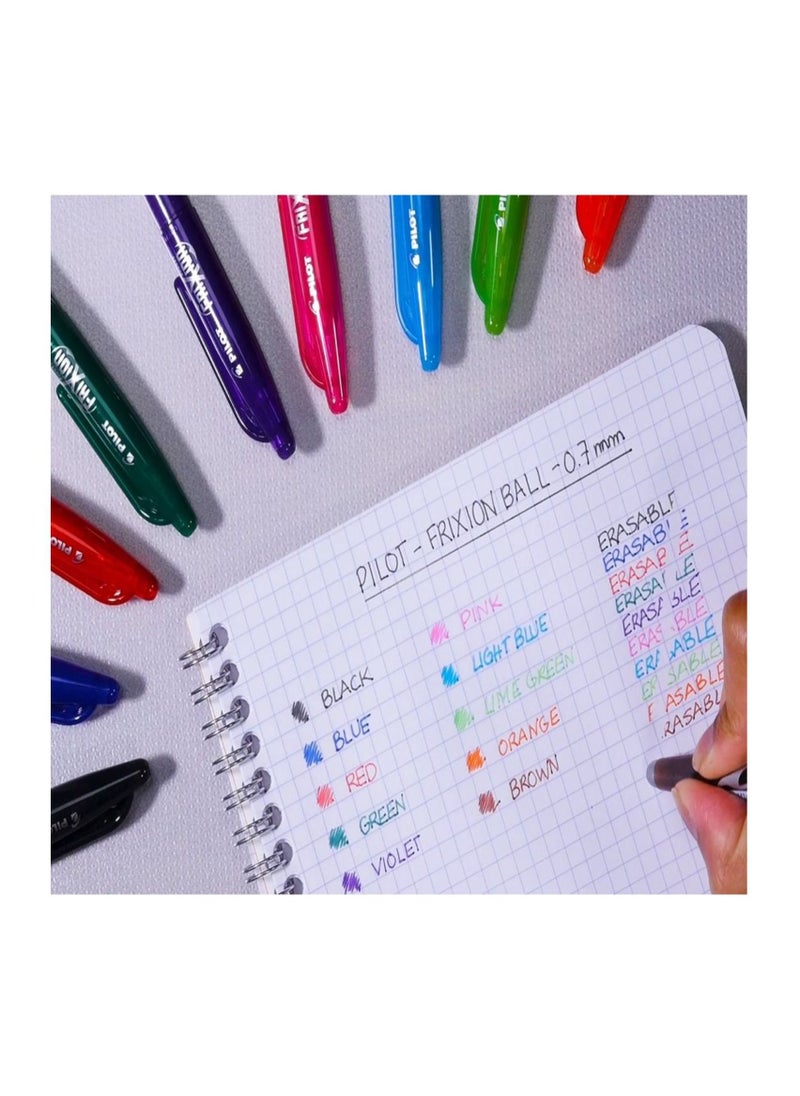 FRIXION
PILOT
FRIXION
PILOT
FRIX
PILOT
PILOT
PI
PILOT
PIL
PILOT - FRIXION BALL - 0.7mm
BLACK
BLUE
RED
GREEN
VIOLET
PINK
LIGHT BLUE
LIME GREEN
ORANGE
BROWN
ERASABLE
ERASAB E
ERASAB E
ERASA LE
ERASA BLE
ERAS BLE
ERA ABLE
ER SABLE
E ASABLE
RASABL